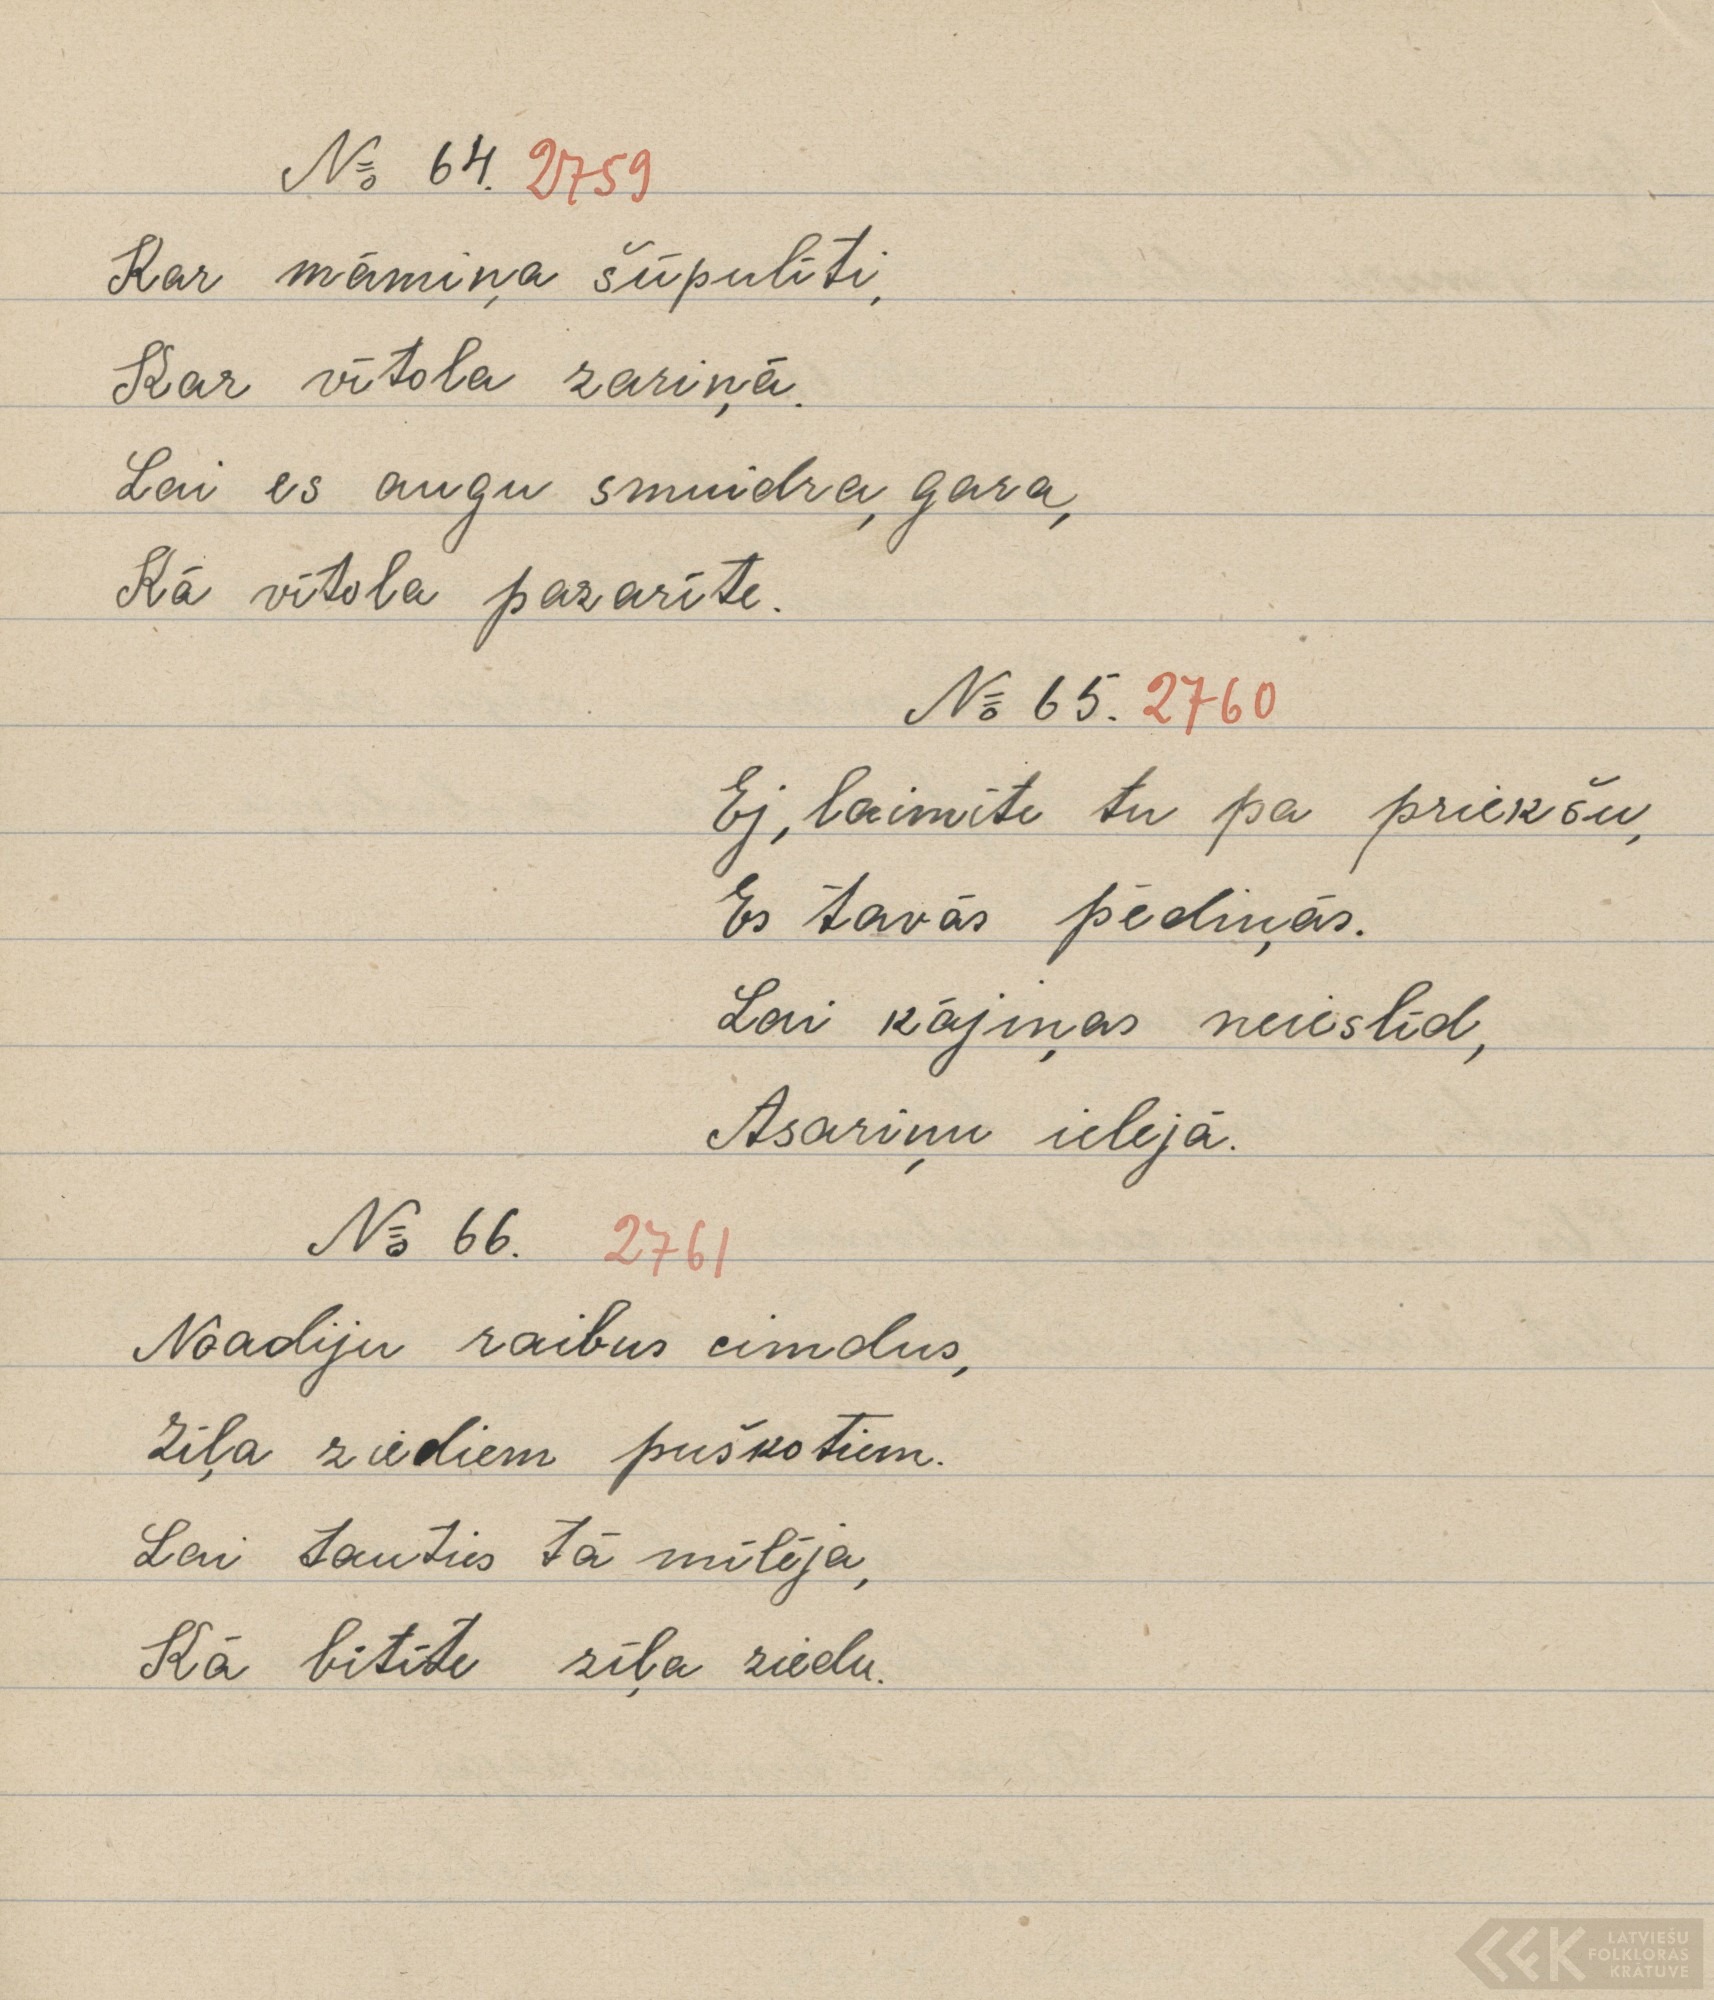 № 64. 2759
Kar māmiņa šūpulīti,
Kar vītola zariņā.
Lai es augu smuidra, gara,
Kā vītola pazarīte.
№ 65. 2760
Ej, laimīte tu pa priekšu,
Es tavās pēdiņās.
Lai kājiņas neieslīd,
Asariņu ielejā.
№ 66. 2761
Noadīju raibus cimdus,
Zīļa ziediem puškotiem.
Lai tauties tā mīlēja,
Kā bitīte zīļa ziedu.
LATVIEŠU
FOLKLORAS
KRĀTUVE